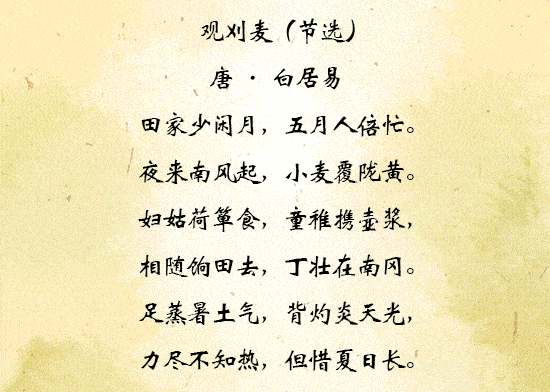 观刈麦（节选）
唐 · 白居易
田家少闲月，五月人倍忙。
夜来南风起，小麦覆陇黄。
妇姑荷箪食，童稚携壶浆，
相随饷田去，丁壮在南冈。
足蒸暑土气，背灼炎天光，
力尽不知热，但惜夏日长。